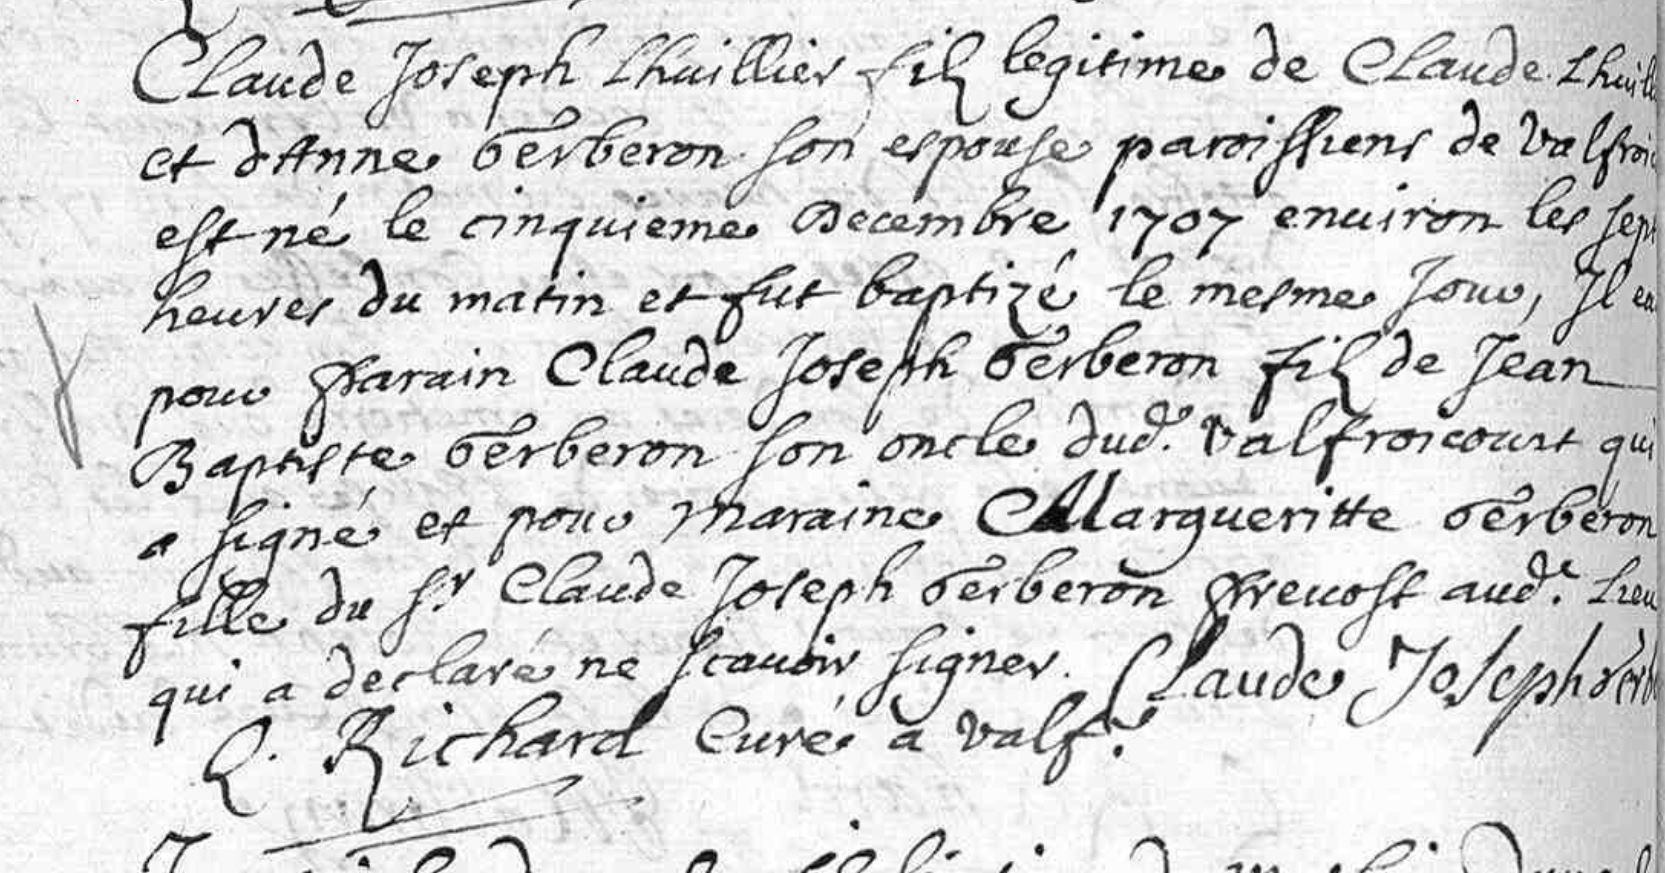 Claude Joseph Lhuillier fils legitime de Claude Lhuill
et d'Anne Gerberon son espouse paroissiens de Valfroi
est né le cinquieme Decembre 1707 environ les sept
heures du matin et fut baptizé le mesme Jour, Il ea
pour Parain Claude Joseph Gerberon fils de Jean
Baptiste Gerberon son oncle dud.t Valfroicourt qui
a signé et pour maraine Margueritte Gerberon
fille du Sr Claude Joseph Gerberon Prevost aud.t Lieu
qui a declaré ne scavoir signer. Claude Joseph Gerb
Richard Curé a Valf.t